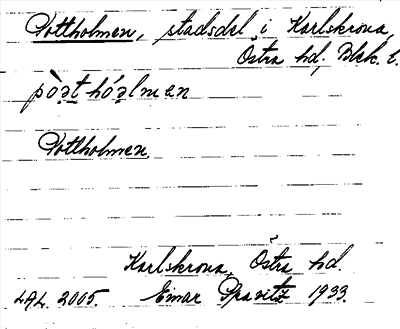 Pottholmen, stadsdel i Karlskrona,
Östra hd, Blek. l.
pòət hóəlmen
Pottholmen.
Karlskrona, Östra hd.
LAL. 2005. Einar 1933.